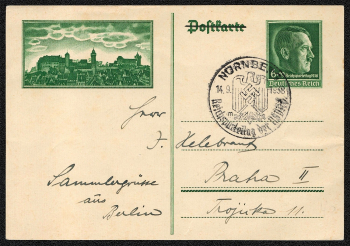 Postkarte
6+19 Reichsparteitag 1938
Deutsches Reich
NÜRNBERG
14.9. 1938
Reichsparteitag der NSDAP
Herr
J. Helebrant
Sammlergrüsse
aus
Berlin
Praha II
Trojická 11.